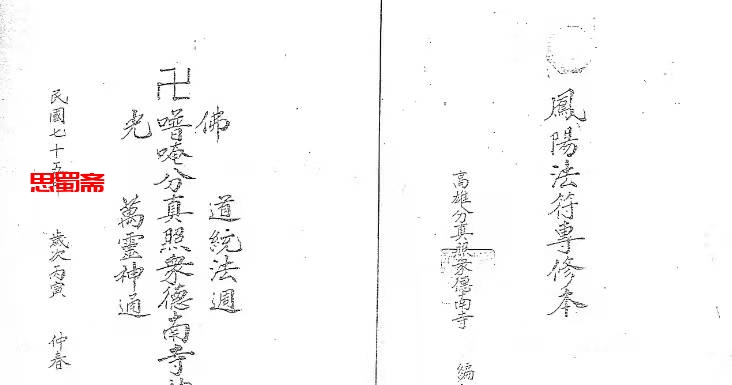 鳳陽法符專修本
高雄分真照眾德南寺 編
佛 道統法週
卍 噆唵分真照眾德南寺
光 萬靈神通
民國七十五 歲次丙寅 仲春
思蜀斋